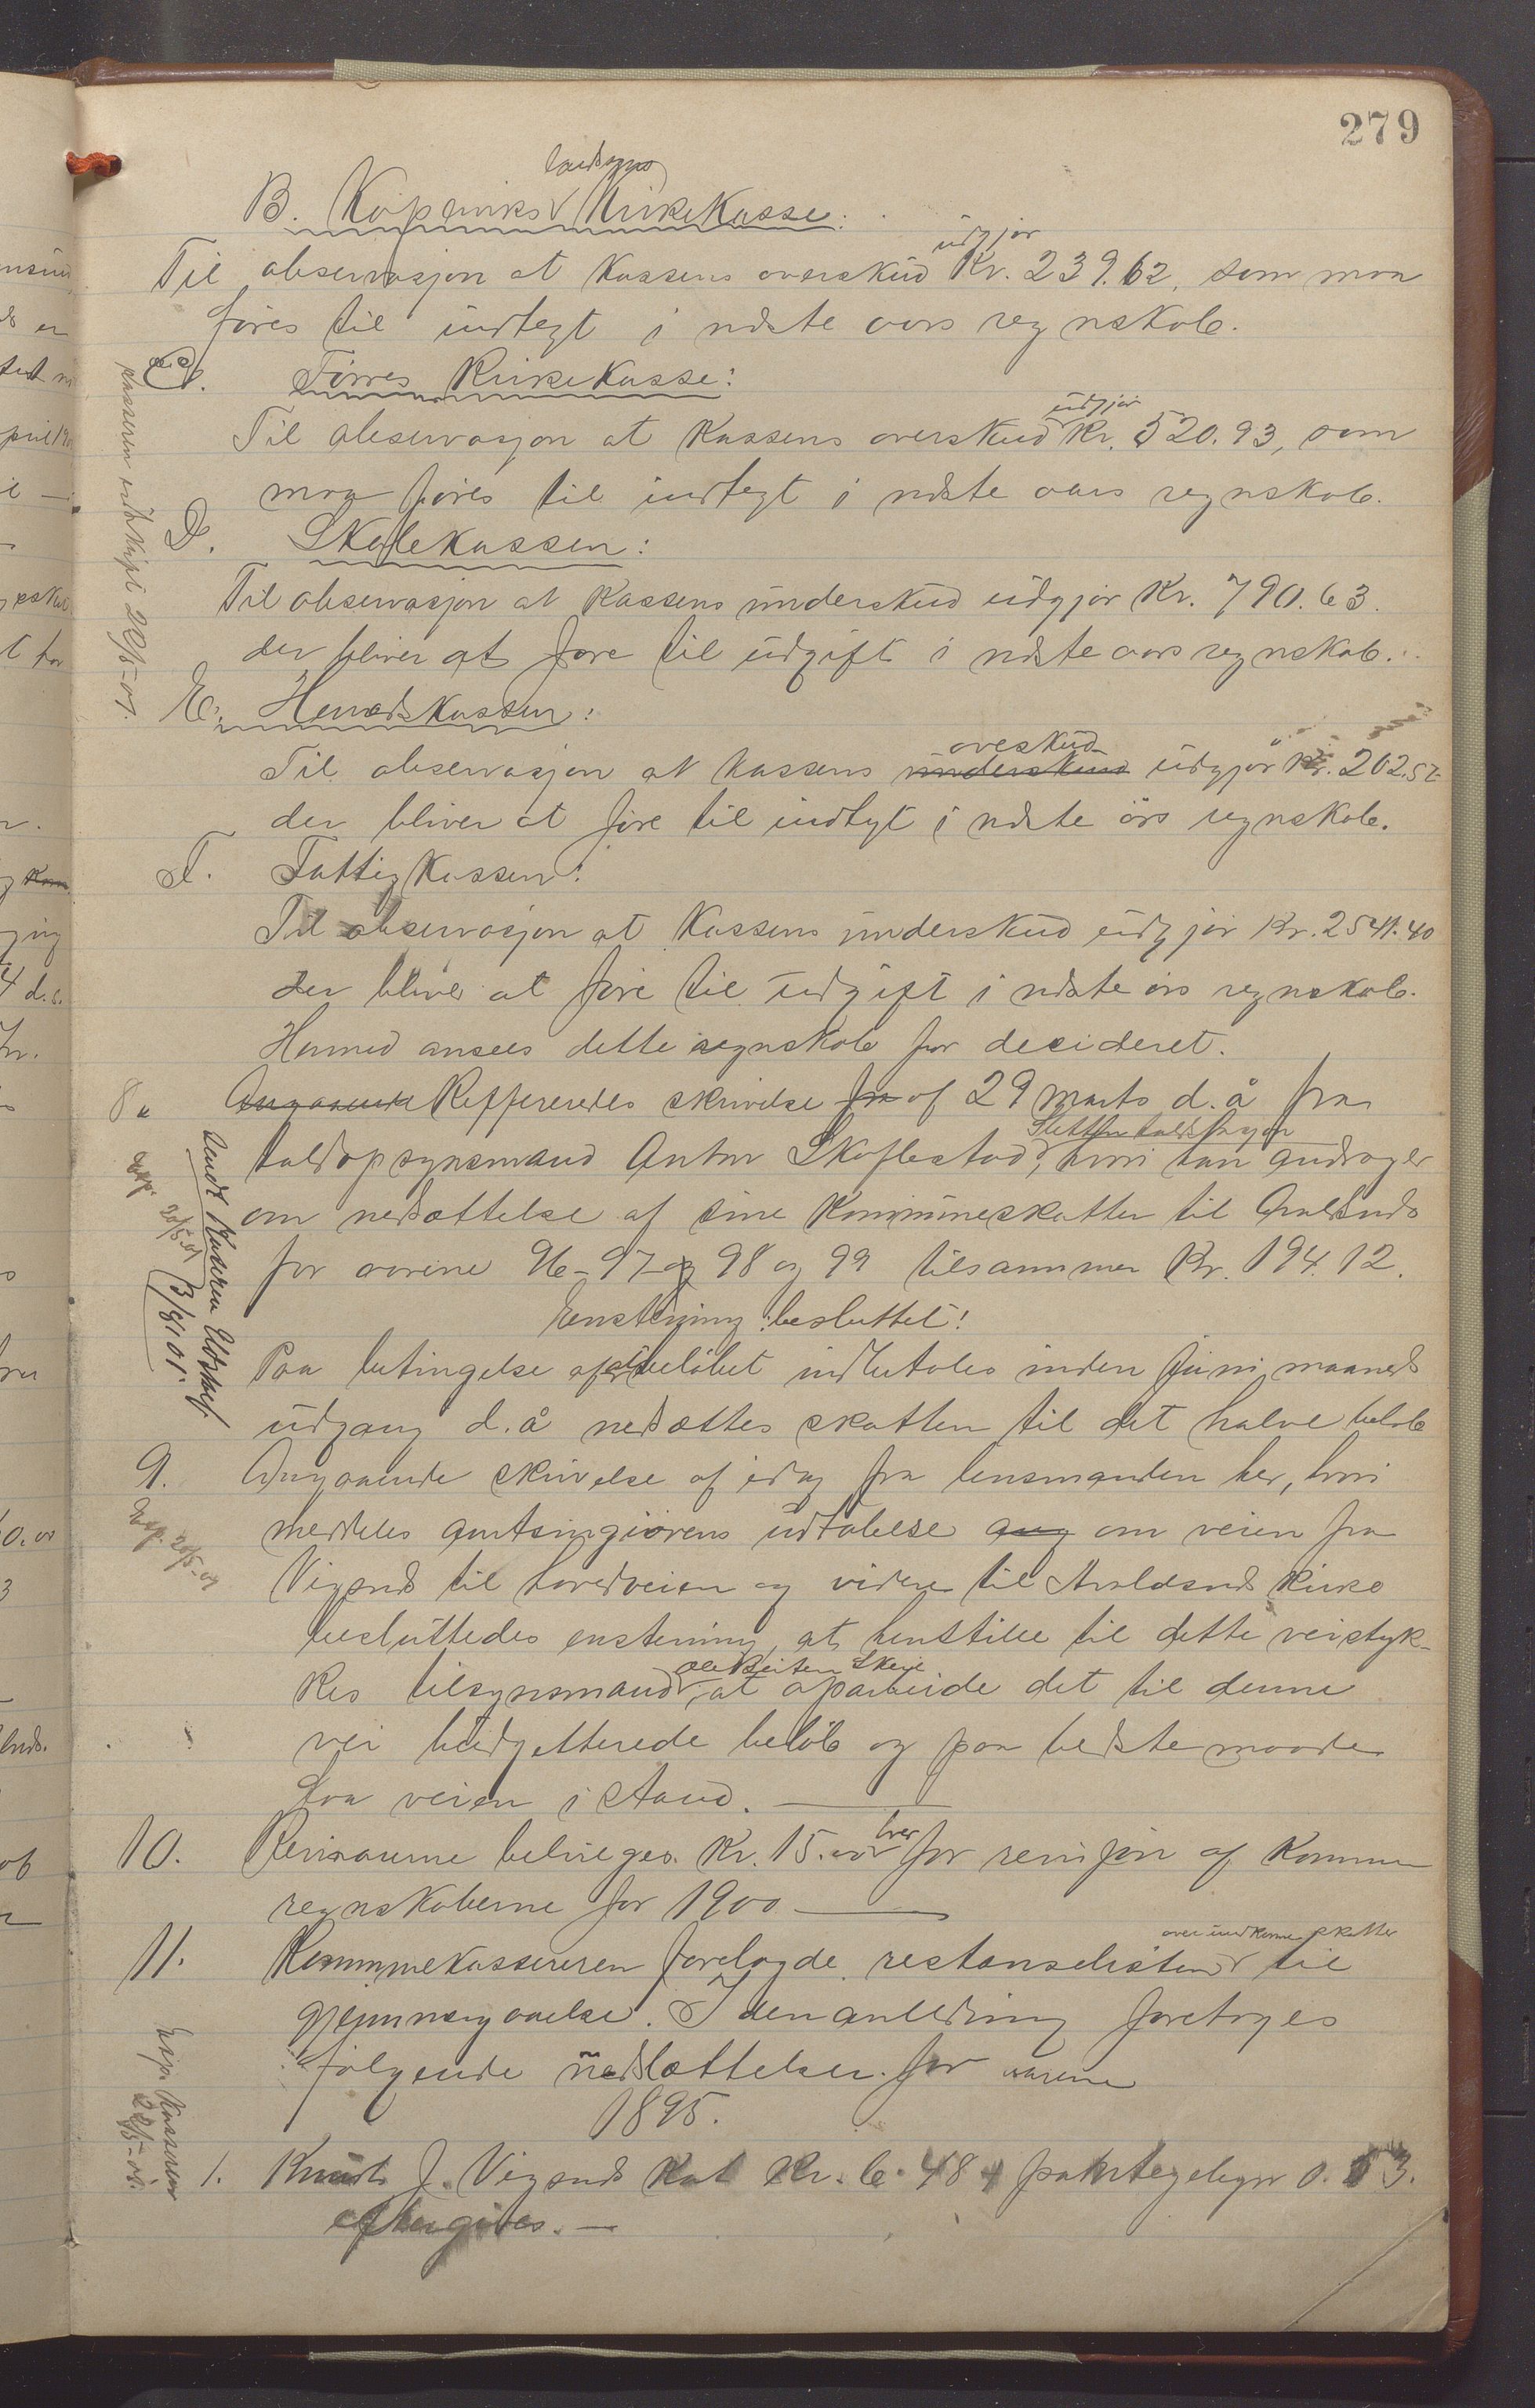 279
landsogns
B. Kopervik Kirkekasse:
udgjør
Til observasjon at kassens overskud Kr. 239.62, som maa
føres til indtegt i næste aars regnskab.
C. Førres Kirkekasse:
udgjør
Til observasjon at kassens overskud Kr. 520.93, som
maa føres til indtegt i næste aars regnskab.
D. Skolekassen:
Til observasjon at kassens underskud udgjør Kr. 790.63.
der bliver at føre til udgift i næste aars regnskab.
E. Herredskassen:
overskud
Til observasjon at kassens underskud udgjør Kr. 202.52
der bliver at føre til indtegt i næste års regnskab.
F. Fattigkassen:
Til observasjon at kassens underskud udgjør Kr. 2541.40
der bliver at føre til udgift i næste års regnskab.
Hermed ansees dette regnskab for decideret.
8. Angaaende Reffereredes skrivelse fra af 29 marts d.å fra
toldopsynsmand Anton Skoflestad, hvori han andrager
om nedsættelse af sine kommuneskatter til Avaldsnds
for aarene 96-97 og 98 og 99 tilsammen Kr. 194.12.
Enstemmig besluttet:
Paa betingelse af at beløbet indbetales inden juni maaneds
udgang d.å nedsættes skatten til det halve beløb
9. Angaaende skrivelse af idag fra lensmanden her, hvori
meddeles amtsingiørens udtalelse ang om veien fra
Vigsnds til hovedveien og videre til Avaldsnds kirke
besluttedes enstemmig, at henstille til dette veistyk-
kes tilsynsmand, at oparbeide det til denne
vei budgetterede beløb og paa bedste maade
faa veien i stand.
10. Revisorerne bevilges Kr. 15.00 hver for revisjon af kommune
regnskaberne for 1900
over indkomne skatter
11. Kommunekassereren forelagde restanselisten til
gjennemgaaelse. I den anledning foretoges
følgende nedsættelser for aarene
1895.
1. Knud J. Vigsnds skat Kr. 6.48 + paantegelsgr 0.53.
eftergives.
Kasseren udskrift 20/5-01.
Exp. 20/5-01
Sendt Kasseren Udskrift
3/8 1901.
Exp. 20/5-01
Exp. Kasseren
20/5-01.